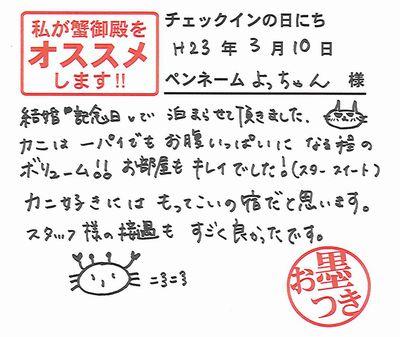 私が蟹御殿を
オススメ
します!!
チェックインの日にち
H23年3月10日
ペンネーム よっちゃん 様
結婚『記念日』で 泊まらせて頂きました、
カニは 一パイでも お腹いっぱいに なる程の
ボリューム!! お部屋も キレイでした!(スタースイート)
カニ好きには もってこいの宿だと思います。
スタッフ様の接遇も すごく良かったです。
=3=3
お墨つき